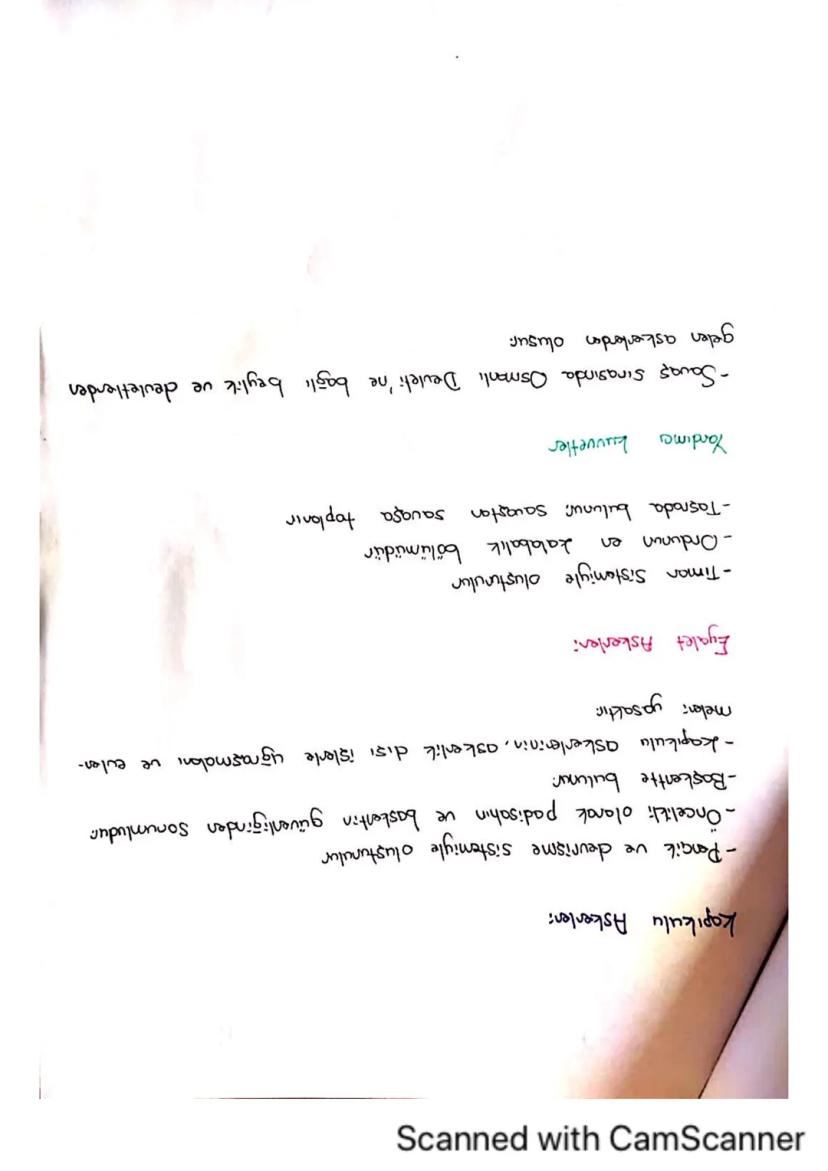 Kapıkulu Askerleri:
- Pençik ve devşirme sistemiyle oluşturulur
- Öncelikli olarak padişahın ve başkentin güvenliğinden sorumludur.
- Başkentte bulunur.
- Kapıkulu askerlerinin, askerlik dışı işlerle uğraşmaları ve evlen-
meleri yasaktır.
Eyalet Askerleri:
- Tımar Sistemiyle oluşturulur
- Ordunun en kalabalık bölümüdür
- Taşrada bulunur. savaştan savaşa toplanır
Yardımcı Kuvvetler
- Savaş sırasında Osmanlı Devleti'ne bağlı beylik ve devletlerden
gelen askerlerden oluşur.
Scanned with CamScanner